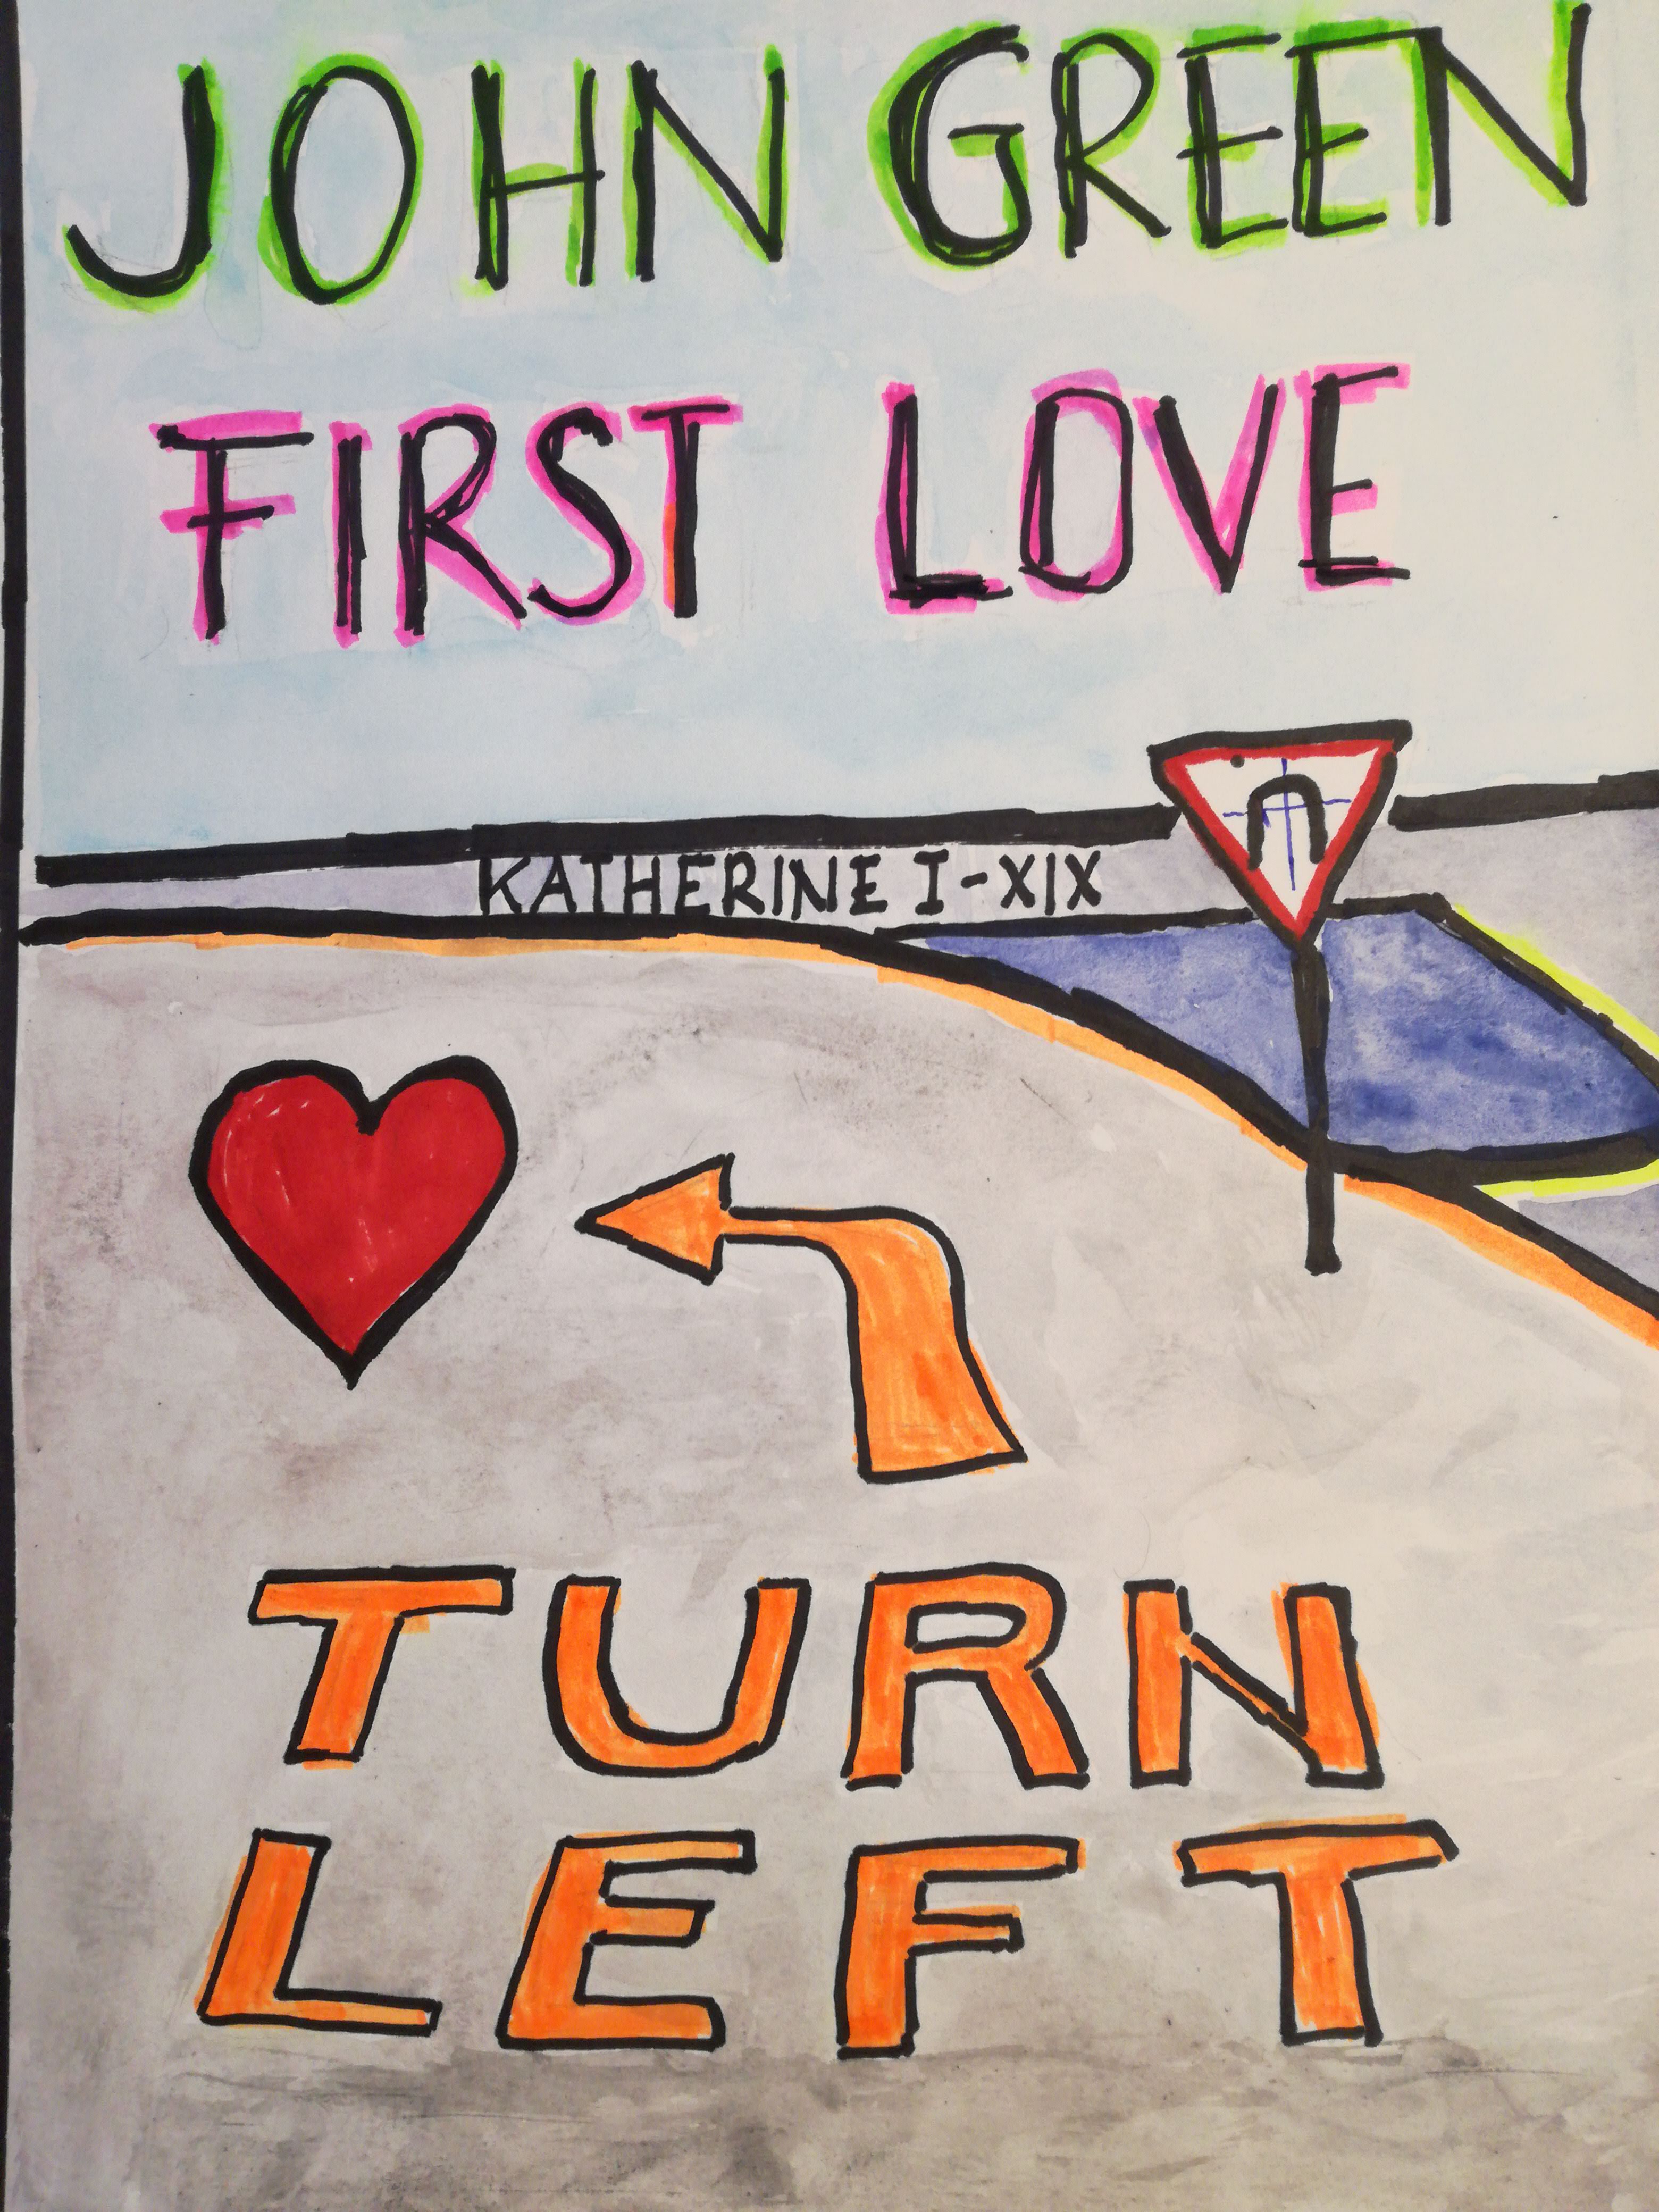 JOHN GREEN
FIRST LOVE
KATHERINE I-XIX
TURN
LEFT